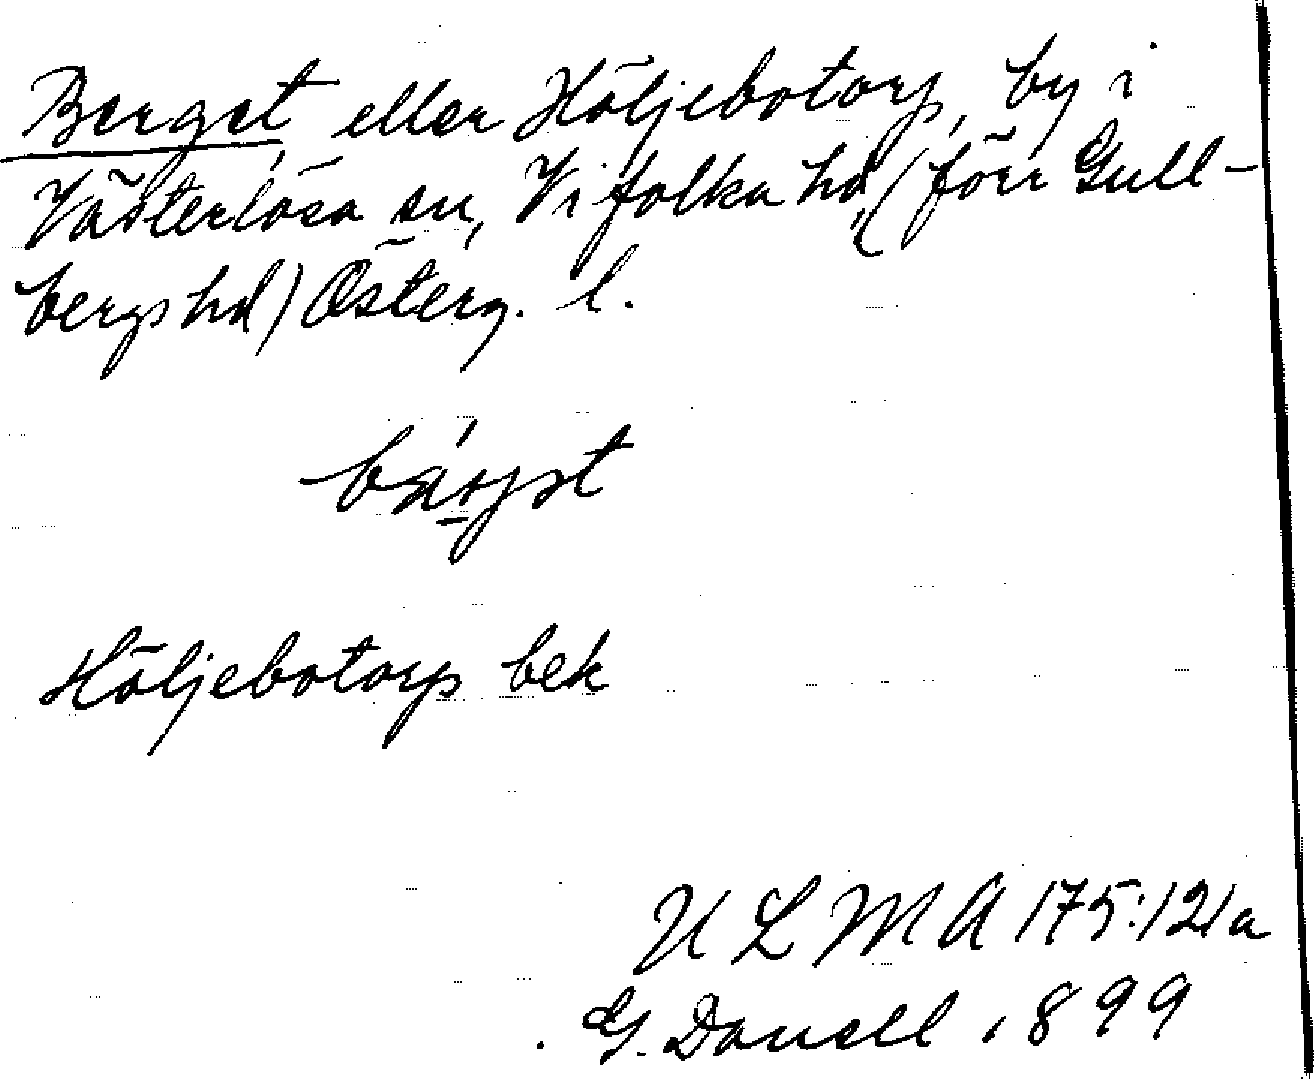 Berget eller Höljebotorp, by i
Västerlösa sn, Vifolka hd (förr Gull-
bergs hd) Österg. l.
Höljebotorp bek
ULMA 175:121a
G. Danell 1899